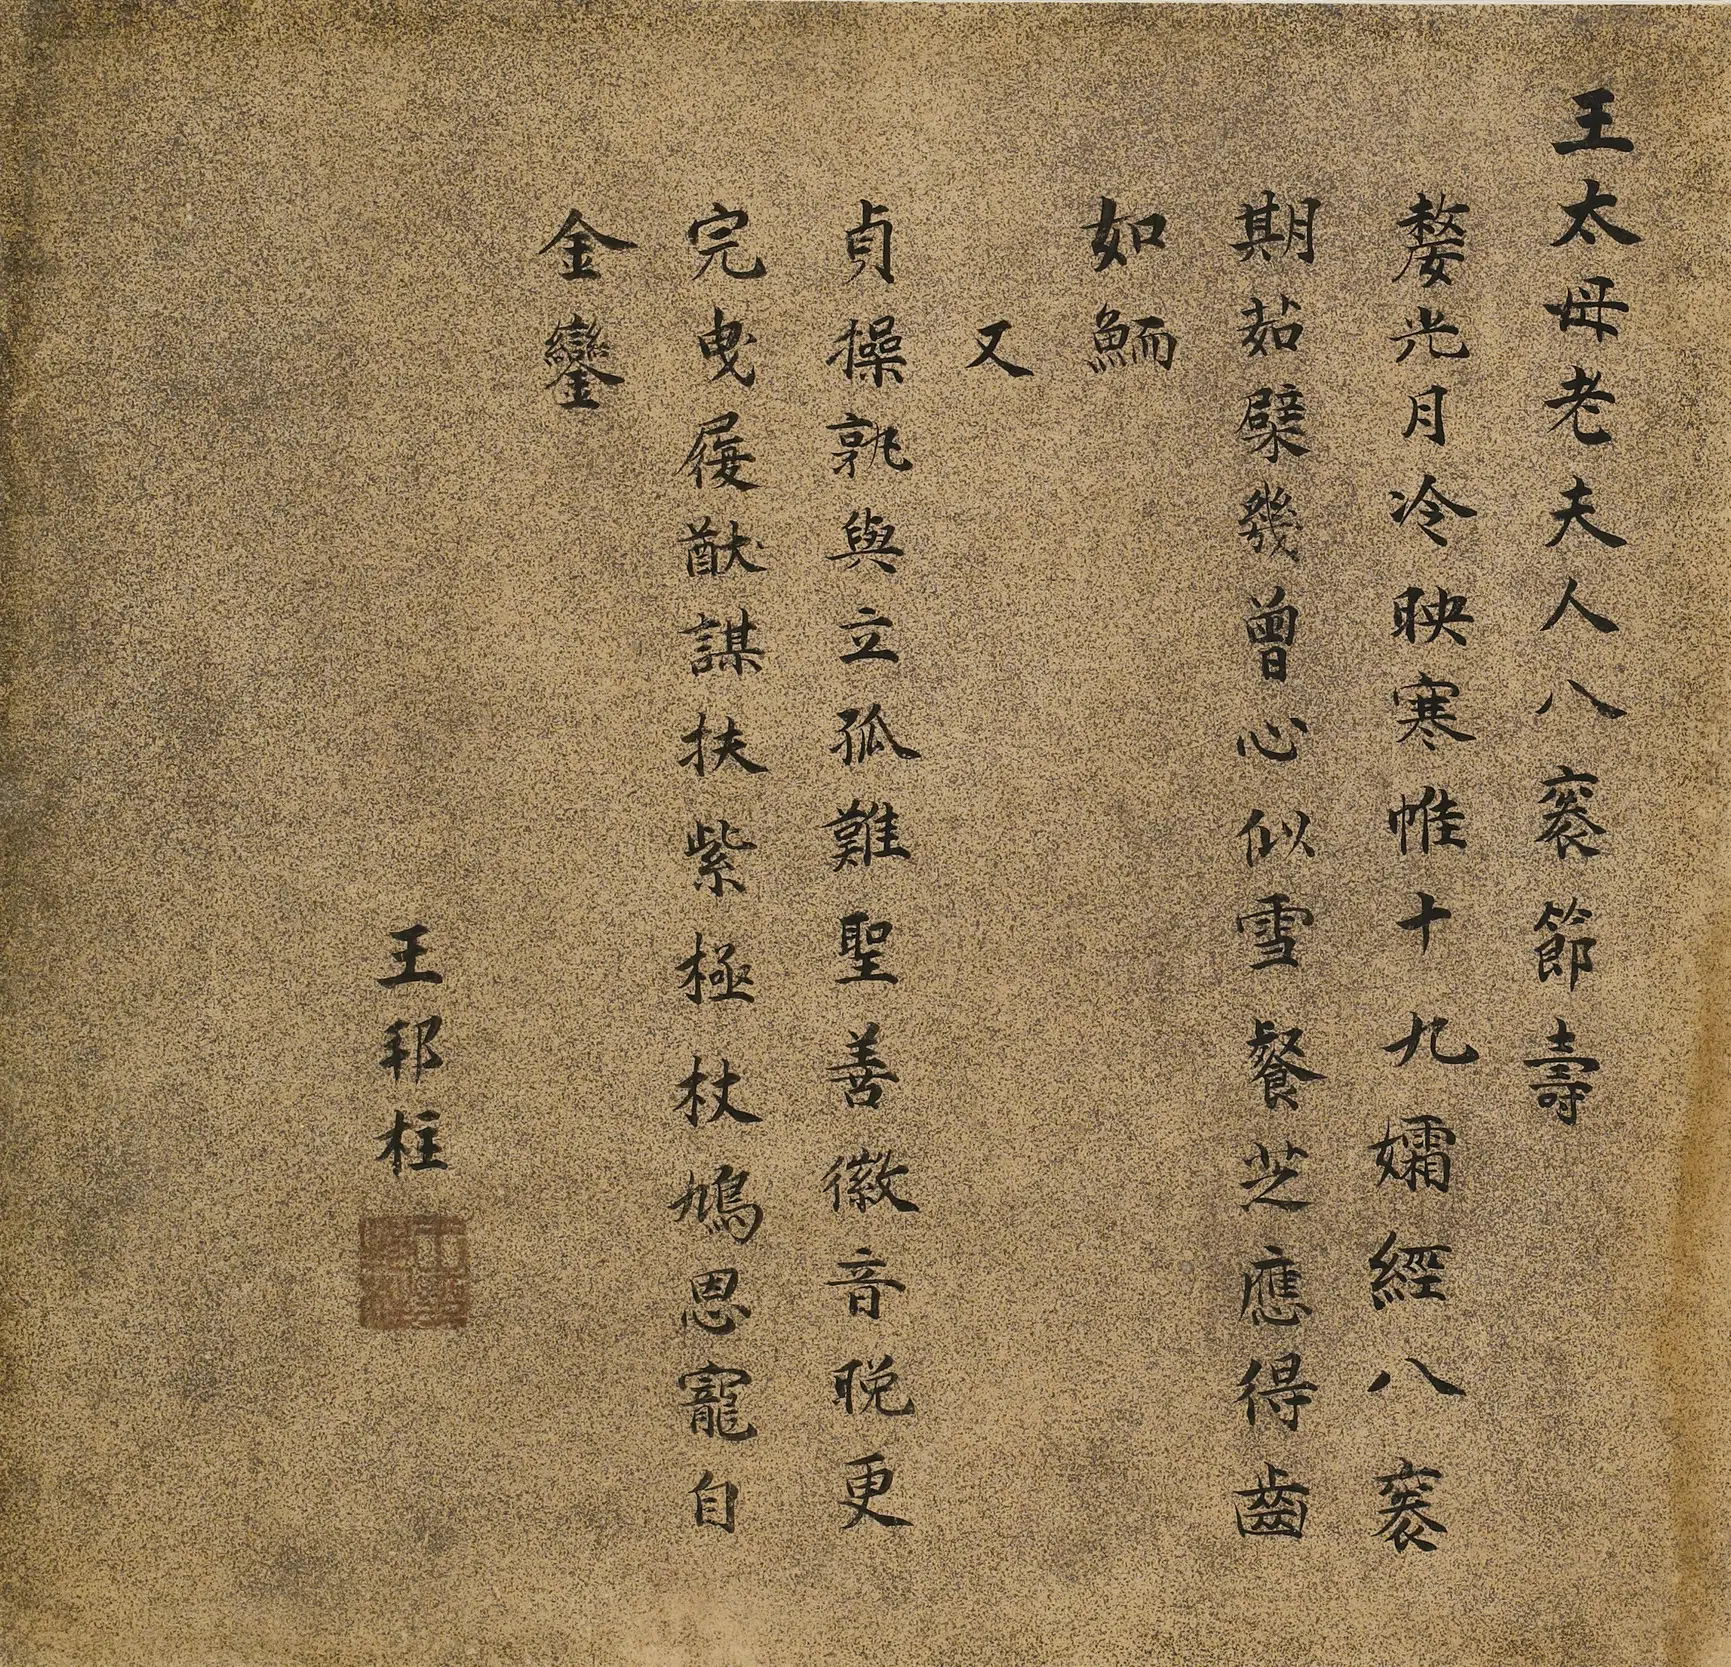 王太母老夫人八袠節壽
嫠光月冷映寒帷十九孀經八袠
期茹檗幾曾心似雪餐芝應得齒
如鮞
又
貞操孰與立孤難聖善徽音晚更
完曳履猷謀扶紫極杖鳩恩寵自
金鑾
王邦柱